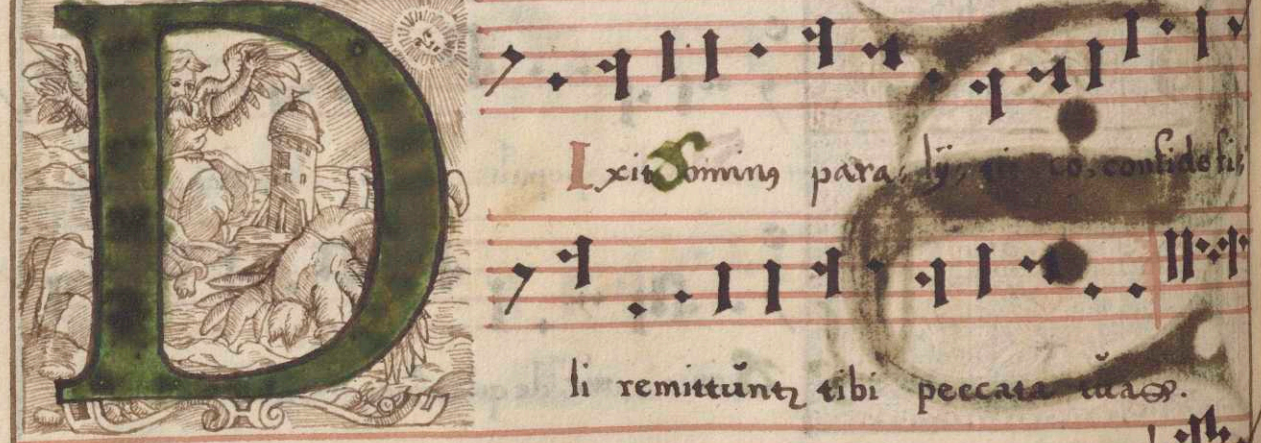 DIxit Dominus para, ly, ti co, confide fi,
li remittuntur tibi peccata tua.